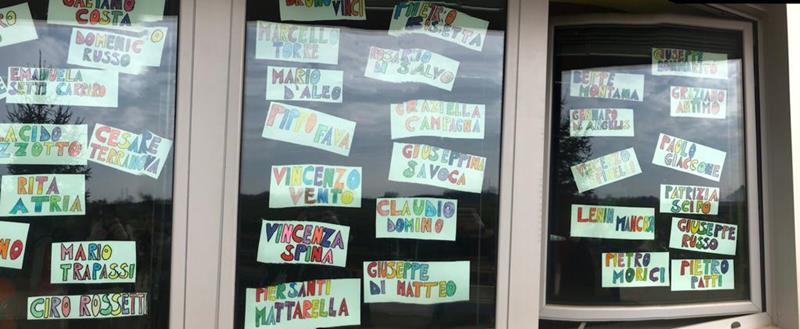 GAETANO
COSTA
DOMENICO
RUSSO
EMANUELA
SETTI CARRARO
PLACIDO
RIZZOTTO
CESARE
TERRANOVA
RITA
ATRIA
MARIO
TRAPASSI
CIRO ROSSETTI
BRUNO VINCI
MARCELLO
TORRE
ROSARIO
DI SALVO
MARIO
D'ALEO
PIPPO FAVA
GRAZIELLA
CAMPAGNA
GIUSEPPINA
SAVOCA
VINCENZO
VENTO
CLAUDIO
DOMINO
VINCENZA
SPINA
PIERSANTI
MATTARELLA
GIUSEPPE
DI MATTEO
GIUSEPPE
BEPPE
MONTANA
GRAZIANO
ANTIMO
GENNARO
DE ANGELIS
PAOLO
GIACCONE
PATRIZIA
SCIFO
LENIN MANCUSO
GIUSEPPE
RUSSO
PIETRO
MORICI
PIETRO
PATTI